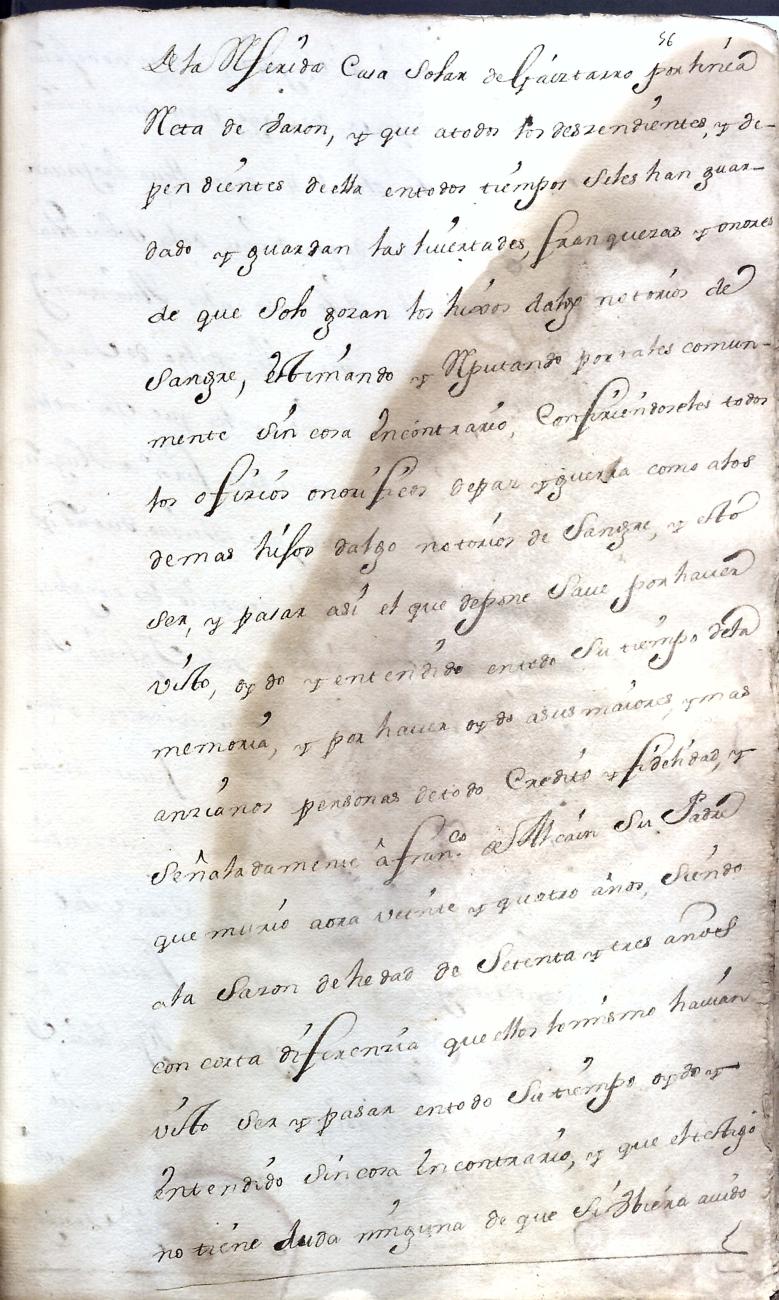 56
de la Referida Casa Solar de Gaiztarro por linea
Recta de varon, y que atodos los deszendientes, y de-
pendientes de ella entodos tiempos seles han guar-
dado y guardan las livertades, franquezas y onores
de que solo gozan los hixos dalgo notorios de
Sangre, estimando y Reputando por tales comun-
mente sin cosa encontrario, Confiriendoseles todos
los ofizios onorificos de paz y guerra como alos
demas hijos dalgo notorios de Sangre, y esto
ser, y pasar asi el que depone Save por haver
visto, oydo y entendido entodo su tiempo dela
memoria, y por haver oydo asus maiores, y mas
anzianos personas detodo Credito y fidelidad, y
señaladamente â fran.co de Su Padre
que murio aora veinte y quatro años, siendo
ala sazon de hedad de Setenta y tres años
con corta diferenzia que ellos lo mismo havian
visto ser y pasar entodo su tiempo oydo y
entendido sin cosa encontrario, y que el testigo
no tiene duda ninguna de que si hubiera avido